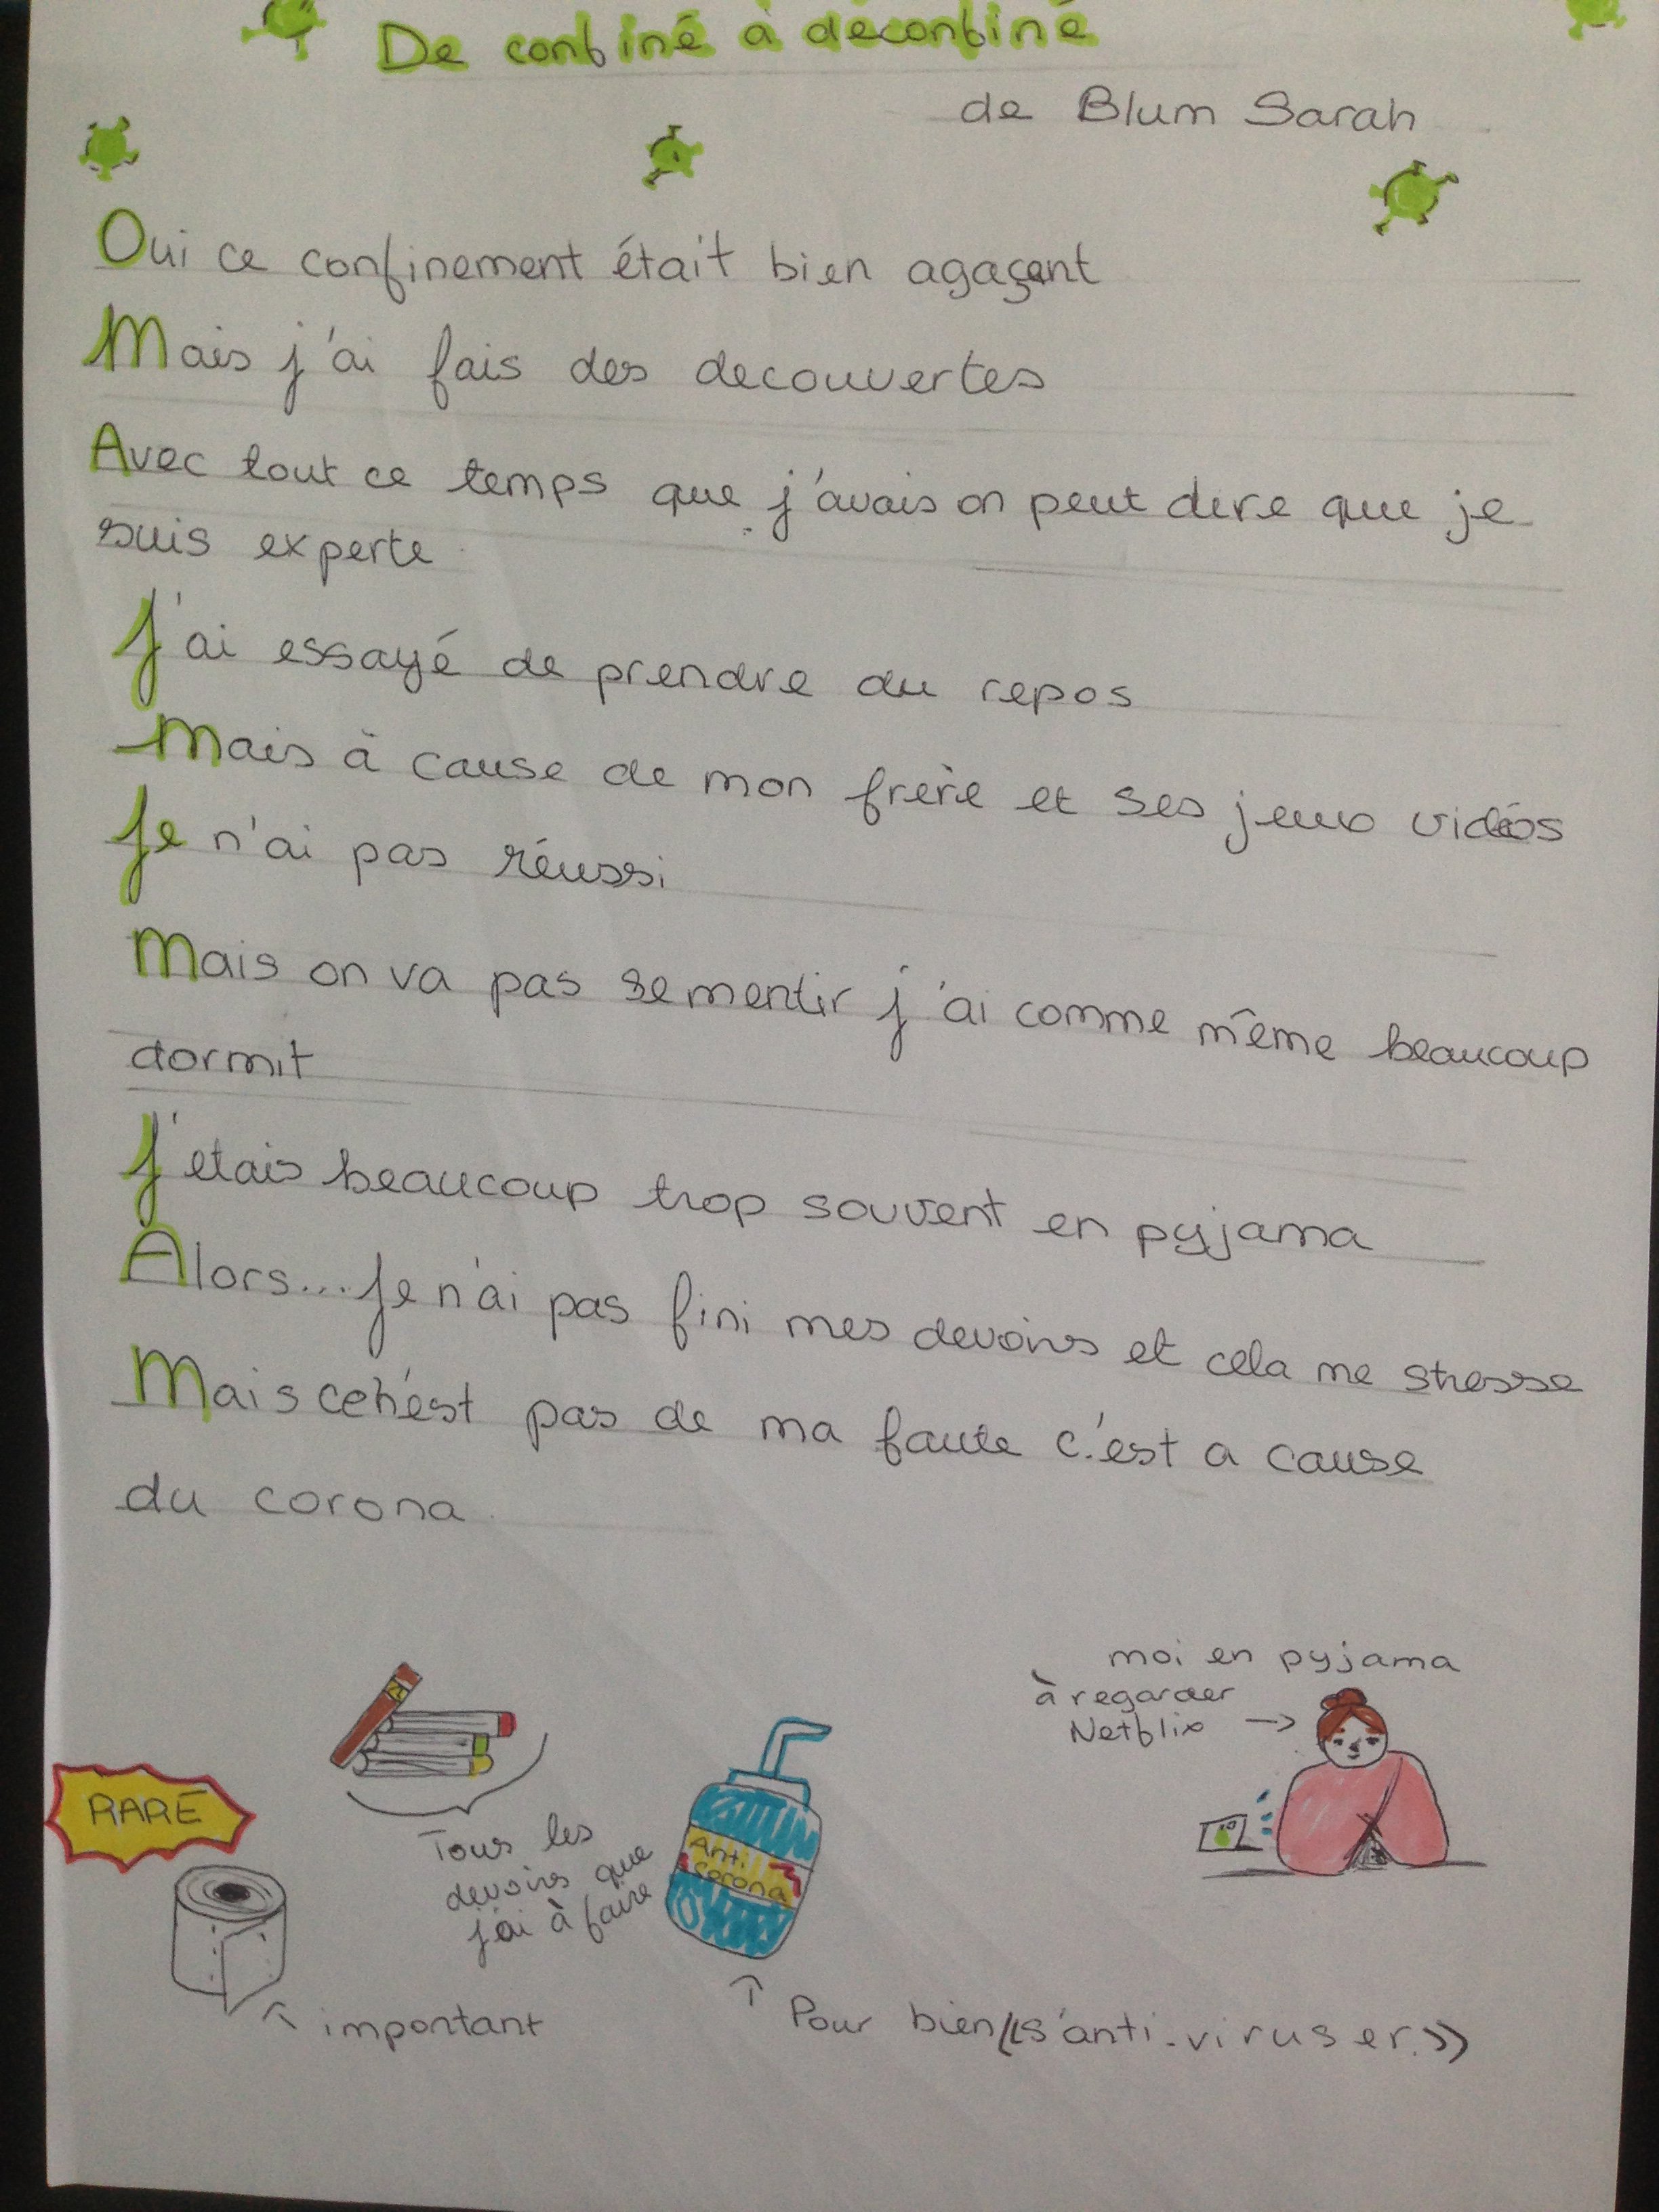 De confiné à déconfiné
de Blum Sarah
Oui ce confinement était bien agaçant
Mais j'ai fais des decouvertes
Avec tout ce temps que j'avais on peut dire que je
suis experte
J'ai essayé de prendre du repos
Mais à cause de mon frère et ses jeux vidéos
Je n'ai pas réussi
Mais on va pas se mentir j'ai comme même beaucoup
dormit
J'etais beaucoup trop souvent en pyjama
Alors... Je n'ai pas fini mes devoirs et cela me stresse
Mais ce n'est pas de ma faute c'est a cause
du corona
moi en pyjama
à regarder
Netflix →
RARE
Tous les
devoirs que
j'ai à faire
Anti
corona
important
Pour bien «s'anti-viruser»